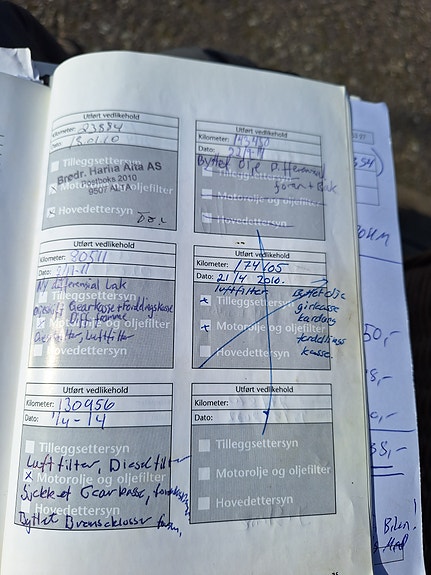 Utført vedlikehold
Kilometer: 23884
Dato: 13.01.10
Tilleggsettersyn
Brødr. Harila Alta AS
Motorolje og oljefilter
Postboks 2010
9507 ALTA
Hovedettersyn
Utført vedlikehold
Kilometer: 80511
Dato:
Ny differential bak
Tilleggsettersyn
Oljeskift Gearkasse + fordelingskasse
Motorolje og oljefilter
Luftfilter
Hovedettersyn
Utført vedlikehold
Kilometer: 130956
Dato: 1/4-14
Tilleggsettersyn
Luftfilter, Dieselfilter
Motorolje og oljefilter
Sjekket Gearkasse,
Hovedettersyn
Byttet Bremseklosser foran,
Utført vedlikehold
Kilometer:
Dato:
Byttet olje Differensial
Tilleggsettersyn
foran + Bak
Motorolje og oljefilter
Hovedettersyn
Utført vedlikehold
Kilometer: 174105
Dato: 21/4 2010.
luftfilter
Tilleggsettersyn
Byttet olje
girkasse
Motorolje og oljefilter
kardang
fordelings
Hovedettersyn
kasse
Utført vedlikehold
Kilometer:
Dato:
Tilleggsettersyn
Motorolje og oljefilter
Hovedettersyn
50,-
Bilen!